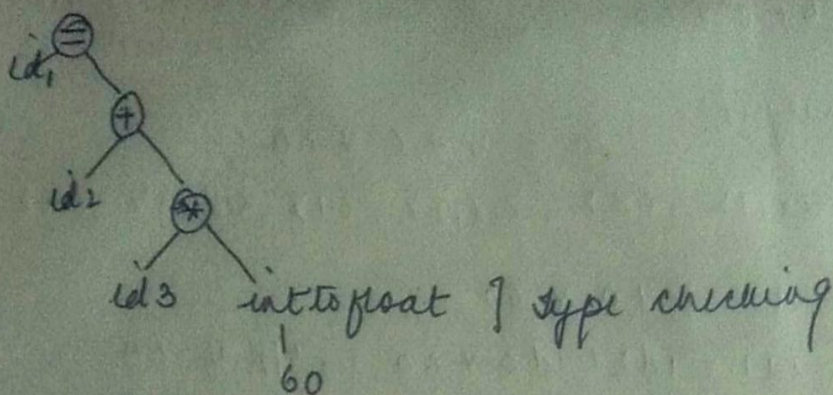 =
id1
+
id2
*
id3 inttofloat } type checking
60